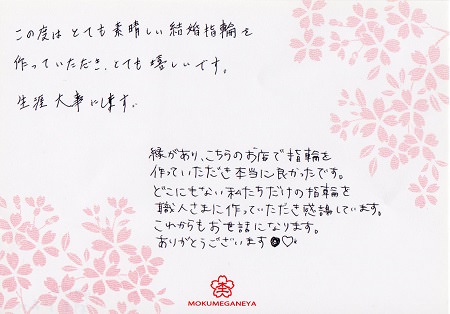 この度は とても 素晴しい 結婚指輪を
作っていただき、とても 嬉しいです。
生涯 大事にします。
縁があり、こちらのお店で指輪を
作っていただき本当に良かったです。
どこにもない私たちだけの指輪を
職人さまに作っていただき感謝しています。
これからもお世話になります。
ありがとうございます
MOKUMEGANEYA